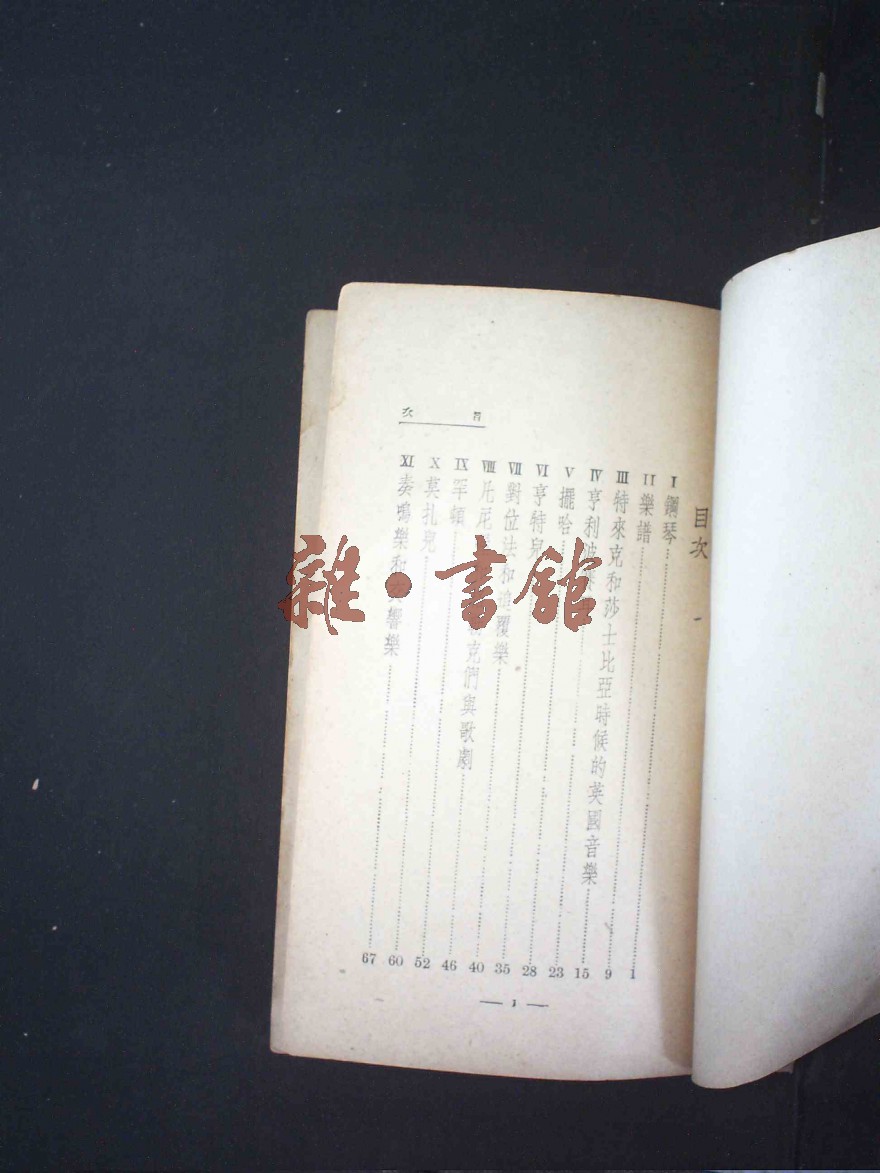 目次
I 鋼琴 1
II 樂譜 9
III 特來克和莎士比亞時候的英國音樂 15
IV 亨利波 23
V 擺哈 28
VI 亨特兒 35
VII 對位法和追覆樂 40
VIII 克們與歌劇 46
IX 罕頓 52
X 莫扎兒 60
XI 奏鳴樂和交響樂 67
目次
— 1 —
雜·書館